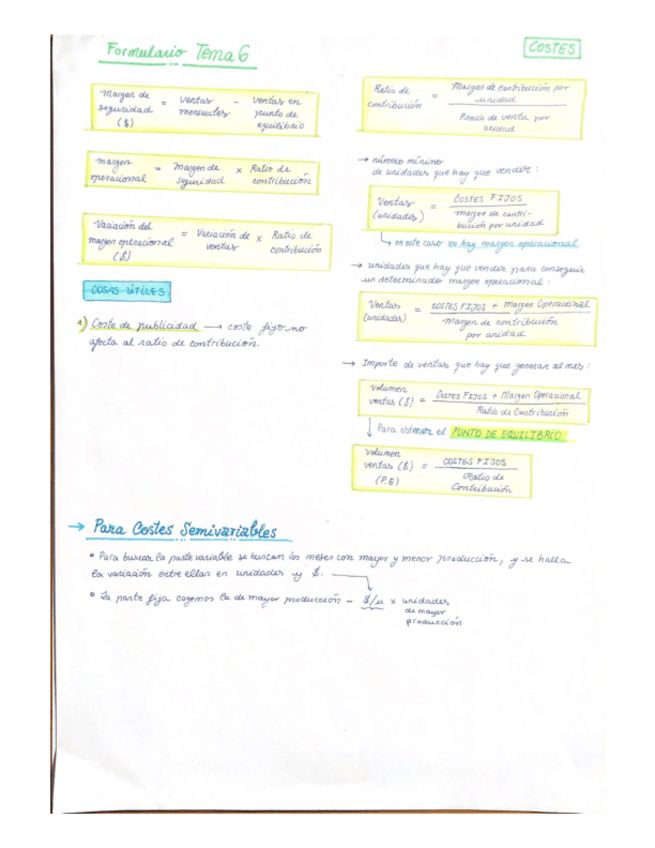 Formulario Tema 6
COSTES
Margen de seguridad ($) = Ventas mensuales - Ventas en punto de equilibrio
margen operacional = Margen de seguridad x Ratio de contribución
Variación del margen operacional ($) = Variación de ventas x Ratio de contribución
COSAS ÚTILES
1) Coste de publicidad → coste fijo no
afecta al ratio de contribución.
Ratio de contribución = Margen de contribución por unidad / Precio de venta por unidad
→ número mínimo
de unidades que hay que vender:
Ventas (unidades) = COSTES FIJOS / margen de contribución por unidad
↳ en este caso no hay margen operacional
→ unidades que hay que vender para conseguir
un determinado margen operacional:
Ventas (unidades) = COSTES FIJOS + Margen Operacional / Margen de contribución por unidad
→ Importe de ventas que hay que generar al mes:
Volumen ventas ($) = Costes FIJOS + Margen Operacional / Ratio de Contribución
↓ Para obtener el PUNTO DE EQUILIBRIO
Volumen ventas ($) (P.E) = COSTES FIJOS / Ratio de Contribución
→ Para Costes Semivariables
• Para buscar la parte variable se buscan los meses con mayor y menor producción, y se halla
la variación entre ellas en unidades y $.
• La parte fija cogemos la de mayor producción - $/u x unidades
de mayor
producción